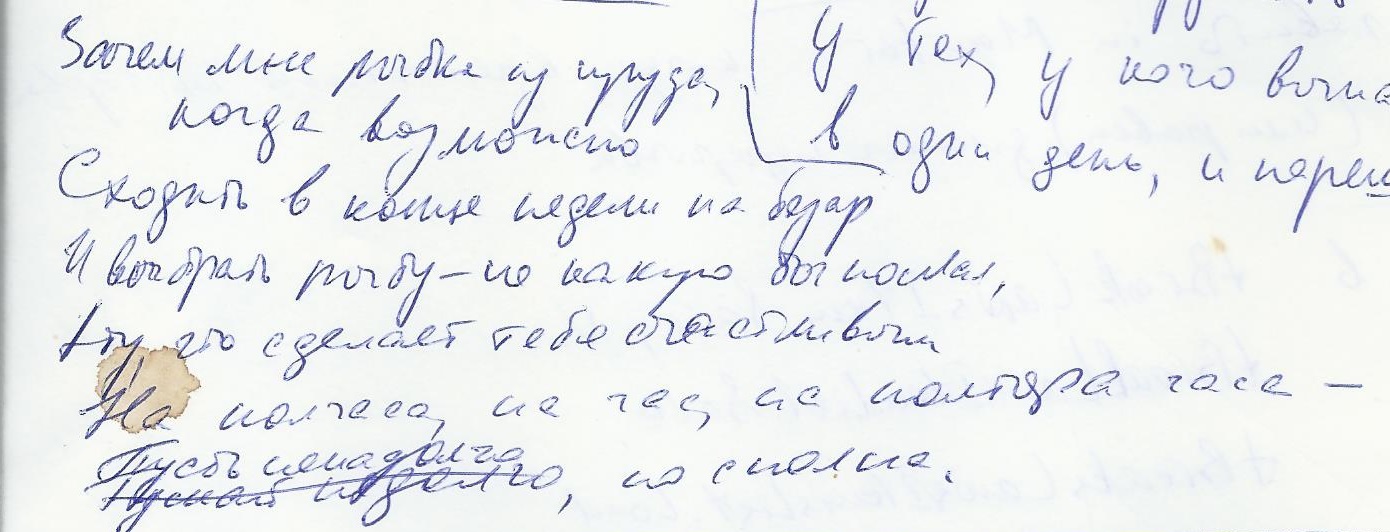 Зачем мне рыбка из пруда,
когда возможно
Сходить в конце недели на базар
И выбрать рыбу – не какую бы послал,
А ту что сделает тебя счастливым
На полчаса, на час, на полтора часа –
Пусть ненадолго
надолго, но сполна.
У тех, у кого
в один день, и